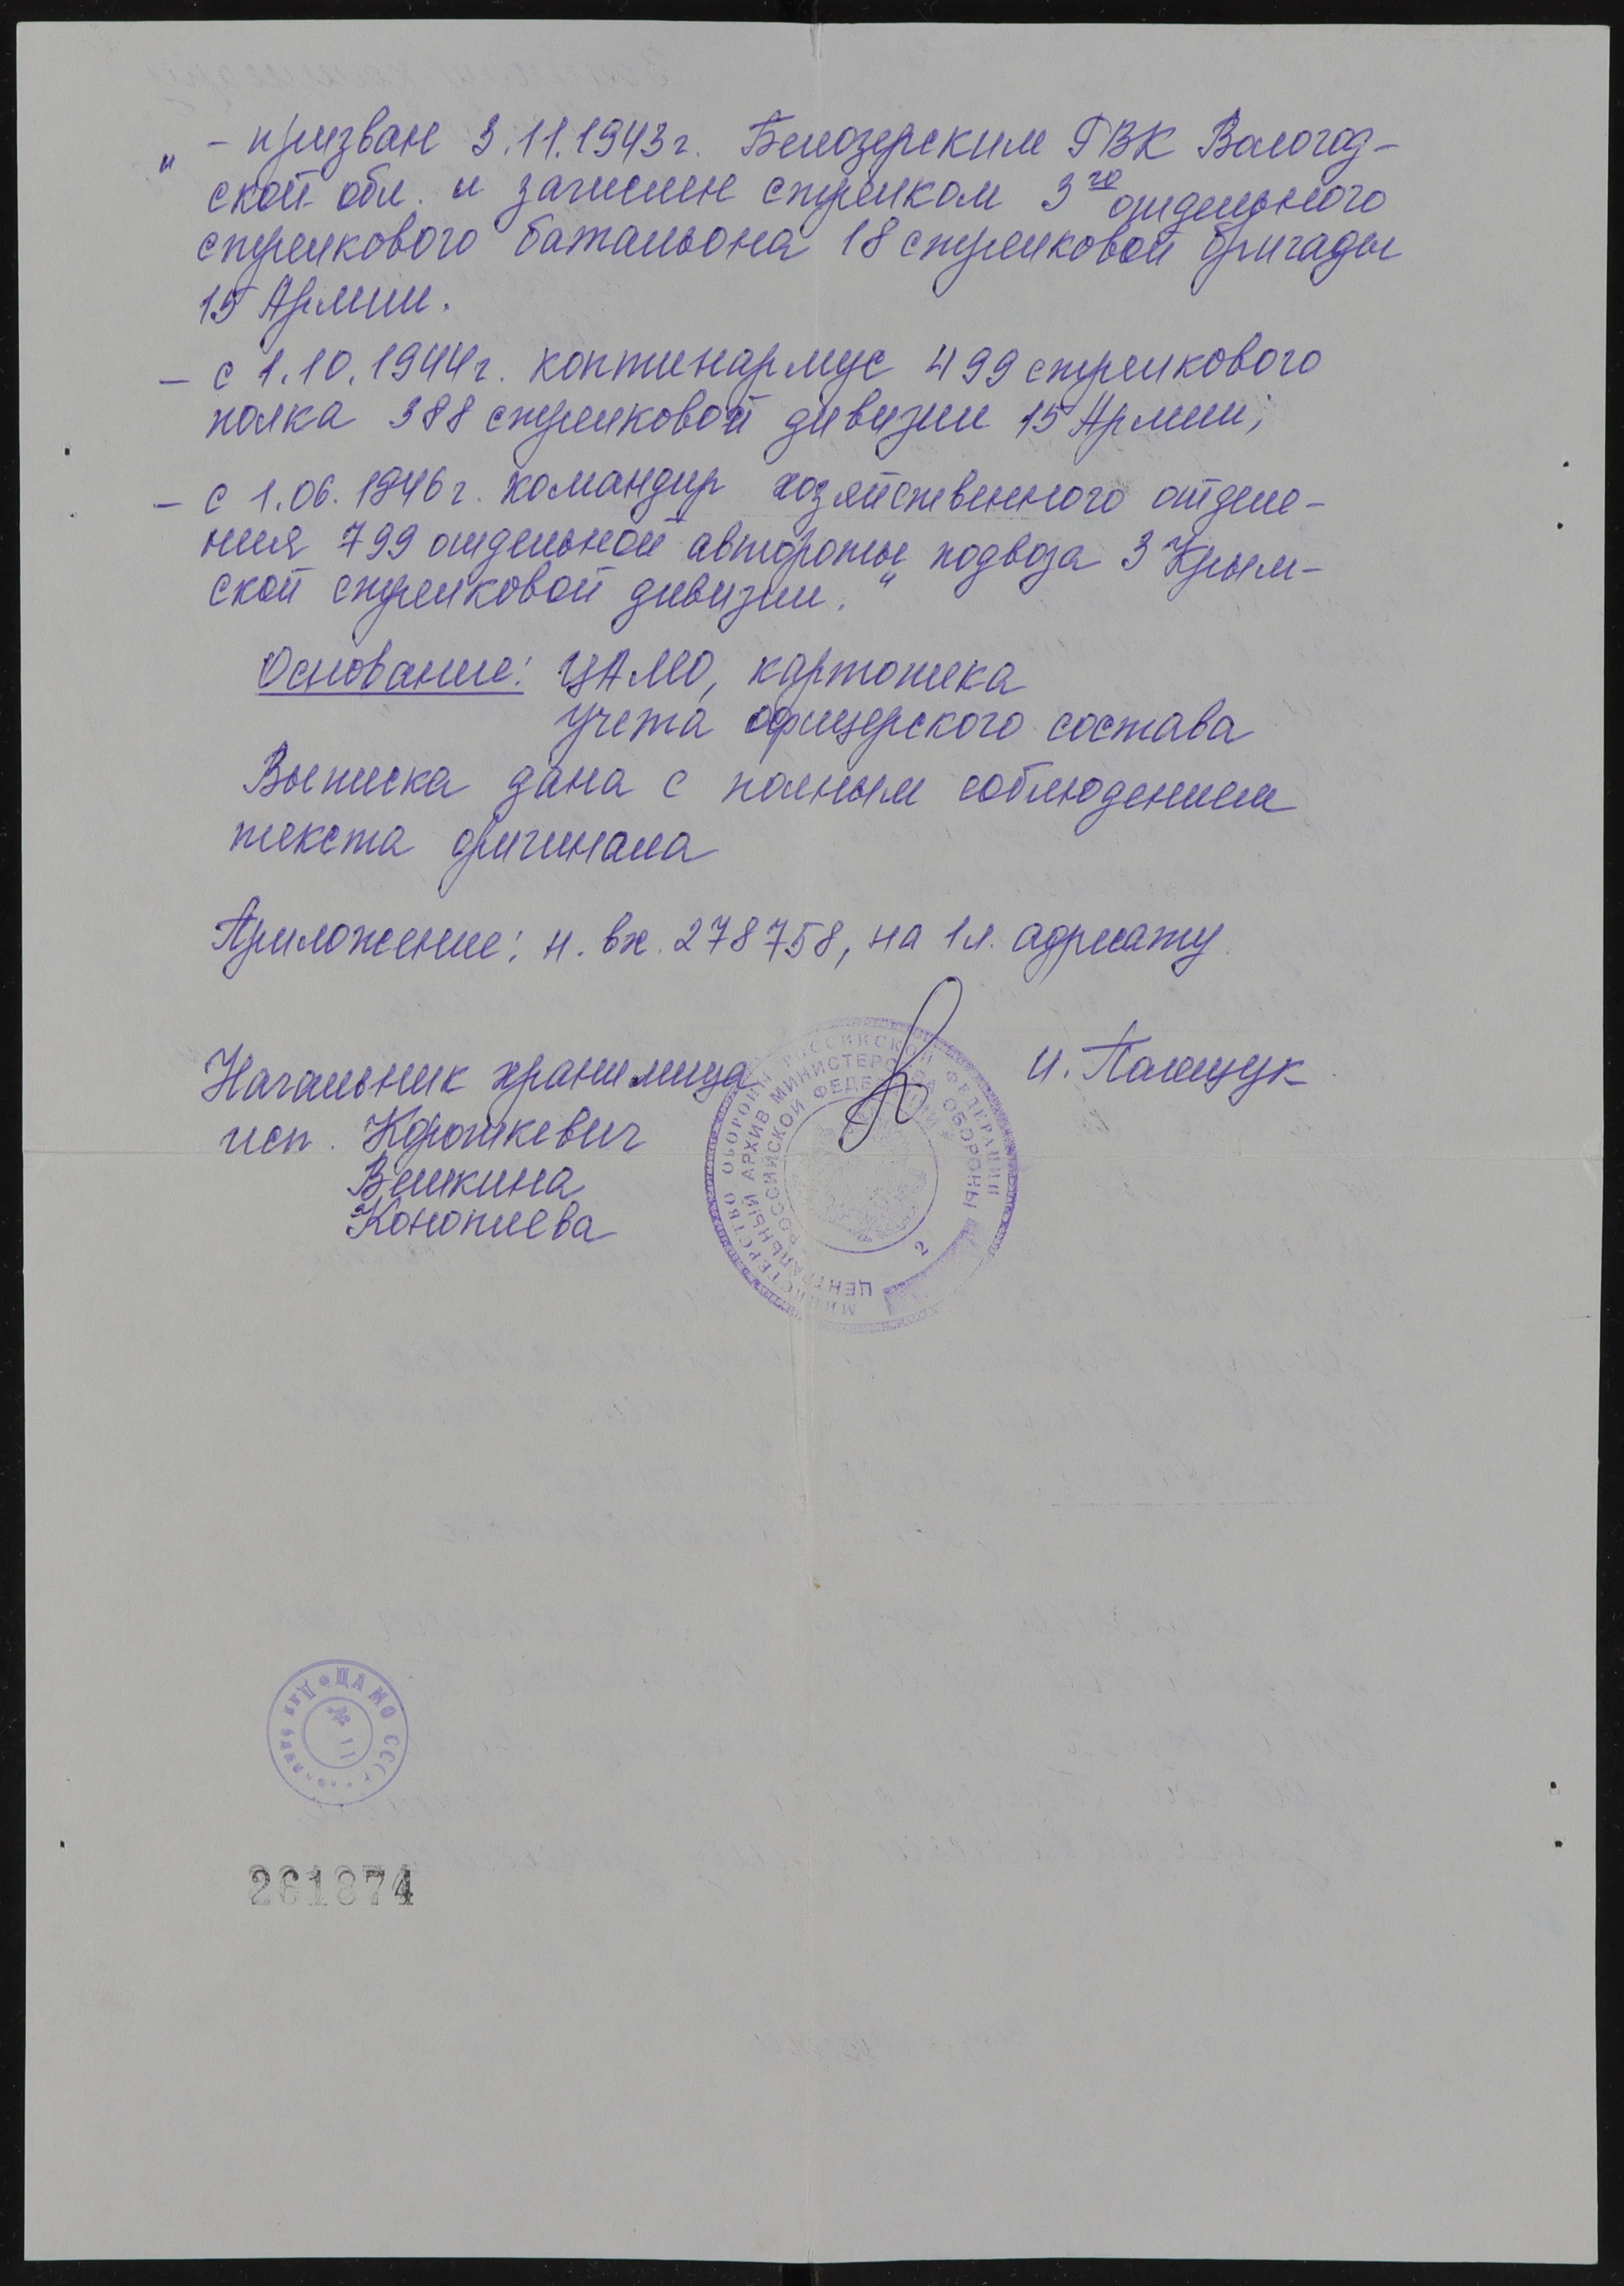 „ – призван 3.11.1943г. Белозерским ГВК Вологод-
ской обл. и зачислен стрелком 3го отдельного
стрелкового батальона 18 стрелковой бригады
15 Армии.
– с 1.10.1944г. коптинармус 499 стрелкового
полка 388 стрелковой дивизии 15 Армии;
– с 1.06.1946г. командир хозяйственного отделе-
ния 799 отдельной автороты подвоза 3 Крым-
ской стрелковой дивизии."
Основание: ЦАМО, картотека
учета офицерского состава
Выписка дана с полным соблюдением
текста оригинала
Приложение: н. вх. 278758, на 1л. адресату.
Начальник хранилища И. Полищук
исп. Короткевич
Велкина
Коноплева
МИНИСТЕРСТВО ОБОРОНЫ РОССИЙСКОЙ ФЕДЕРАЦИИ
ЦЕНТРАЛЬНЫЙ АРХИВ МИНИСТЕРСТВА ОБОРОНЫ
РОССИЙСКОЙ ФЕДЕРАЦИИ
2
ЦАМО СССР
№ 11
261874